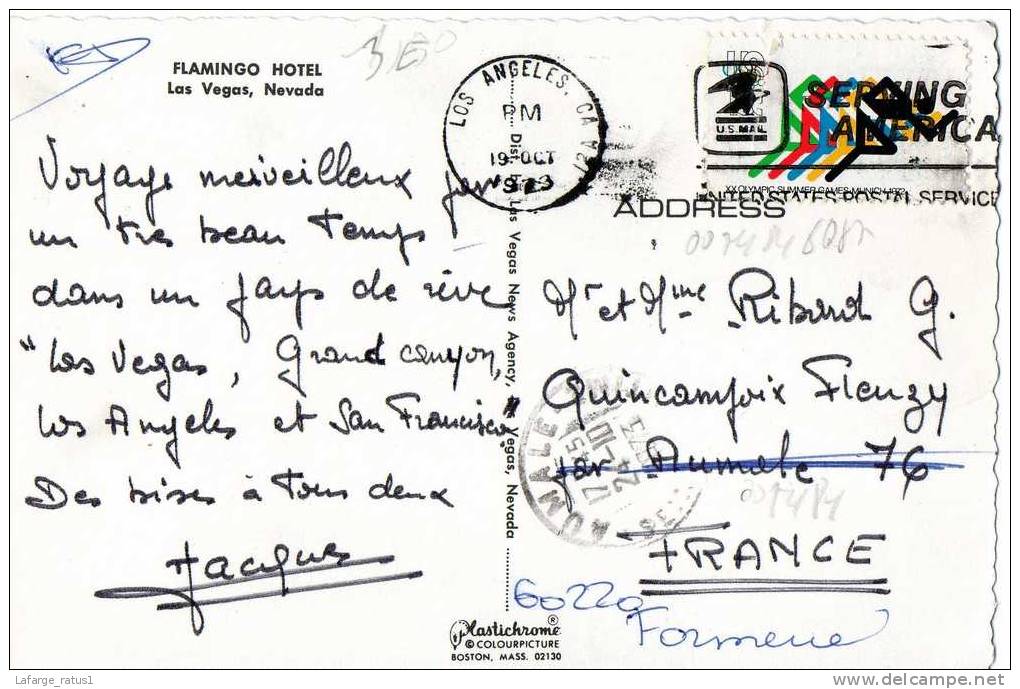 FLAMINGO HOTEL
Las Vegas, Nevada
Voyage merveilleux par
un tres beau temps
dans un pays de rêve
"Los Vegas, Grand canyon,
Los Angeles et San Francisco
Des bises à tous deux
Jacques
Dist. Las Vegas News Agency, Vegas, Nevada
Plastichrome®
© COLOURPICTURE
BOSTON, MASS. 02130
LOS ANGELES, CA
PM
19 OCT
1973
US
U.S. MAIL
SERVING
AMERICA
XX OLYMPIC SUMMER GAMES MUNICH 1972
UNITED STATES POSTAL SERVICE
ADDRESS
Mr et Mme Ribard G.
Quincampoix Fleuzy
par Aumale 76
FRANCE
60220
Formerie
AUMALE
17 45
24-10
Lafarge_ratus1
delcampe.net